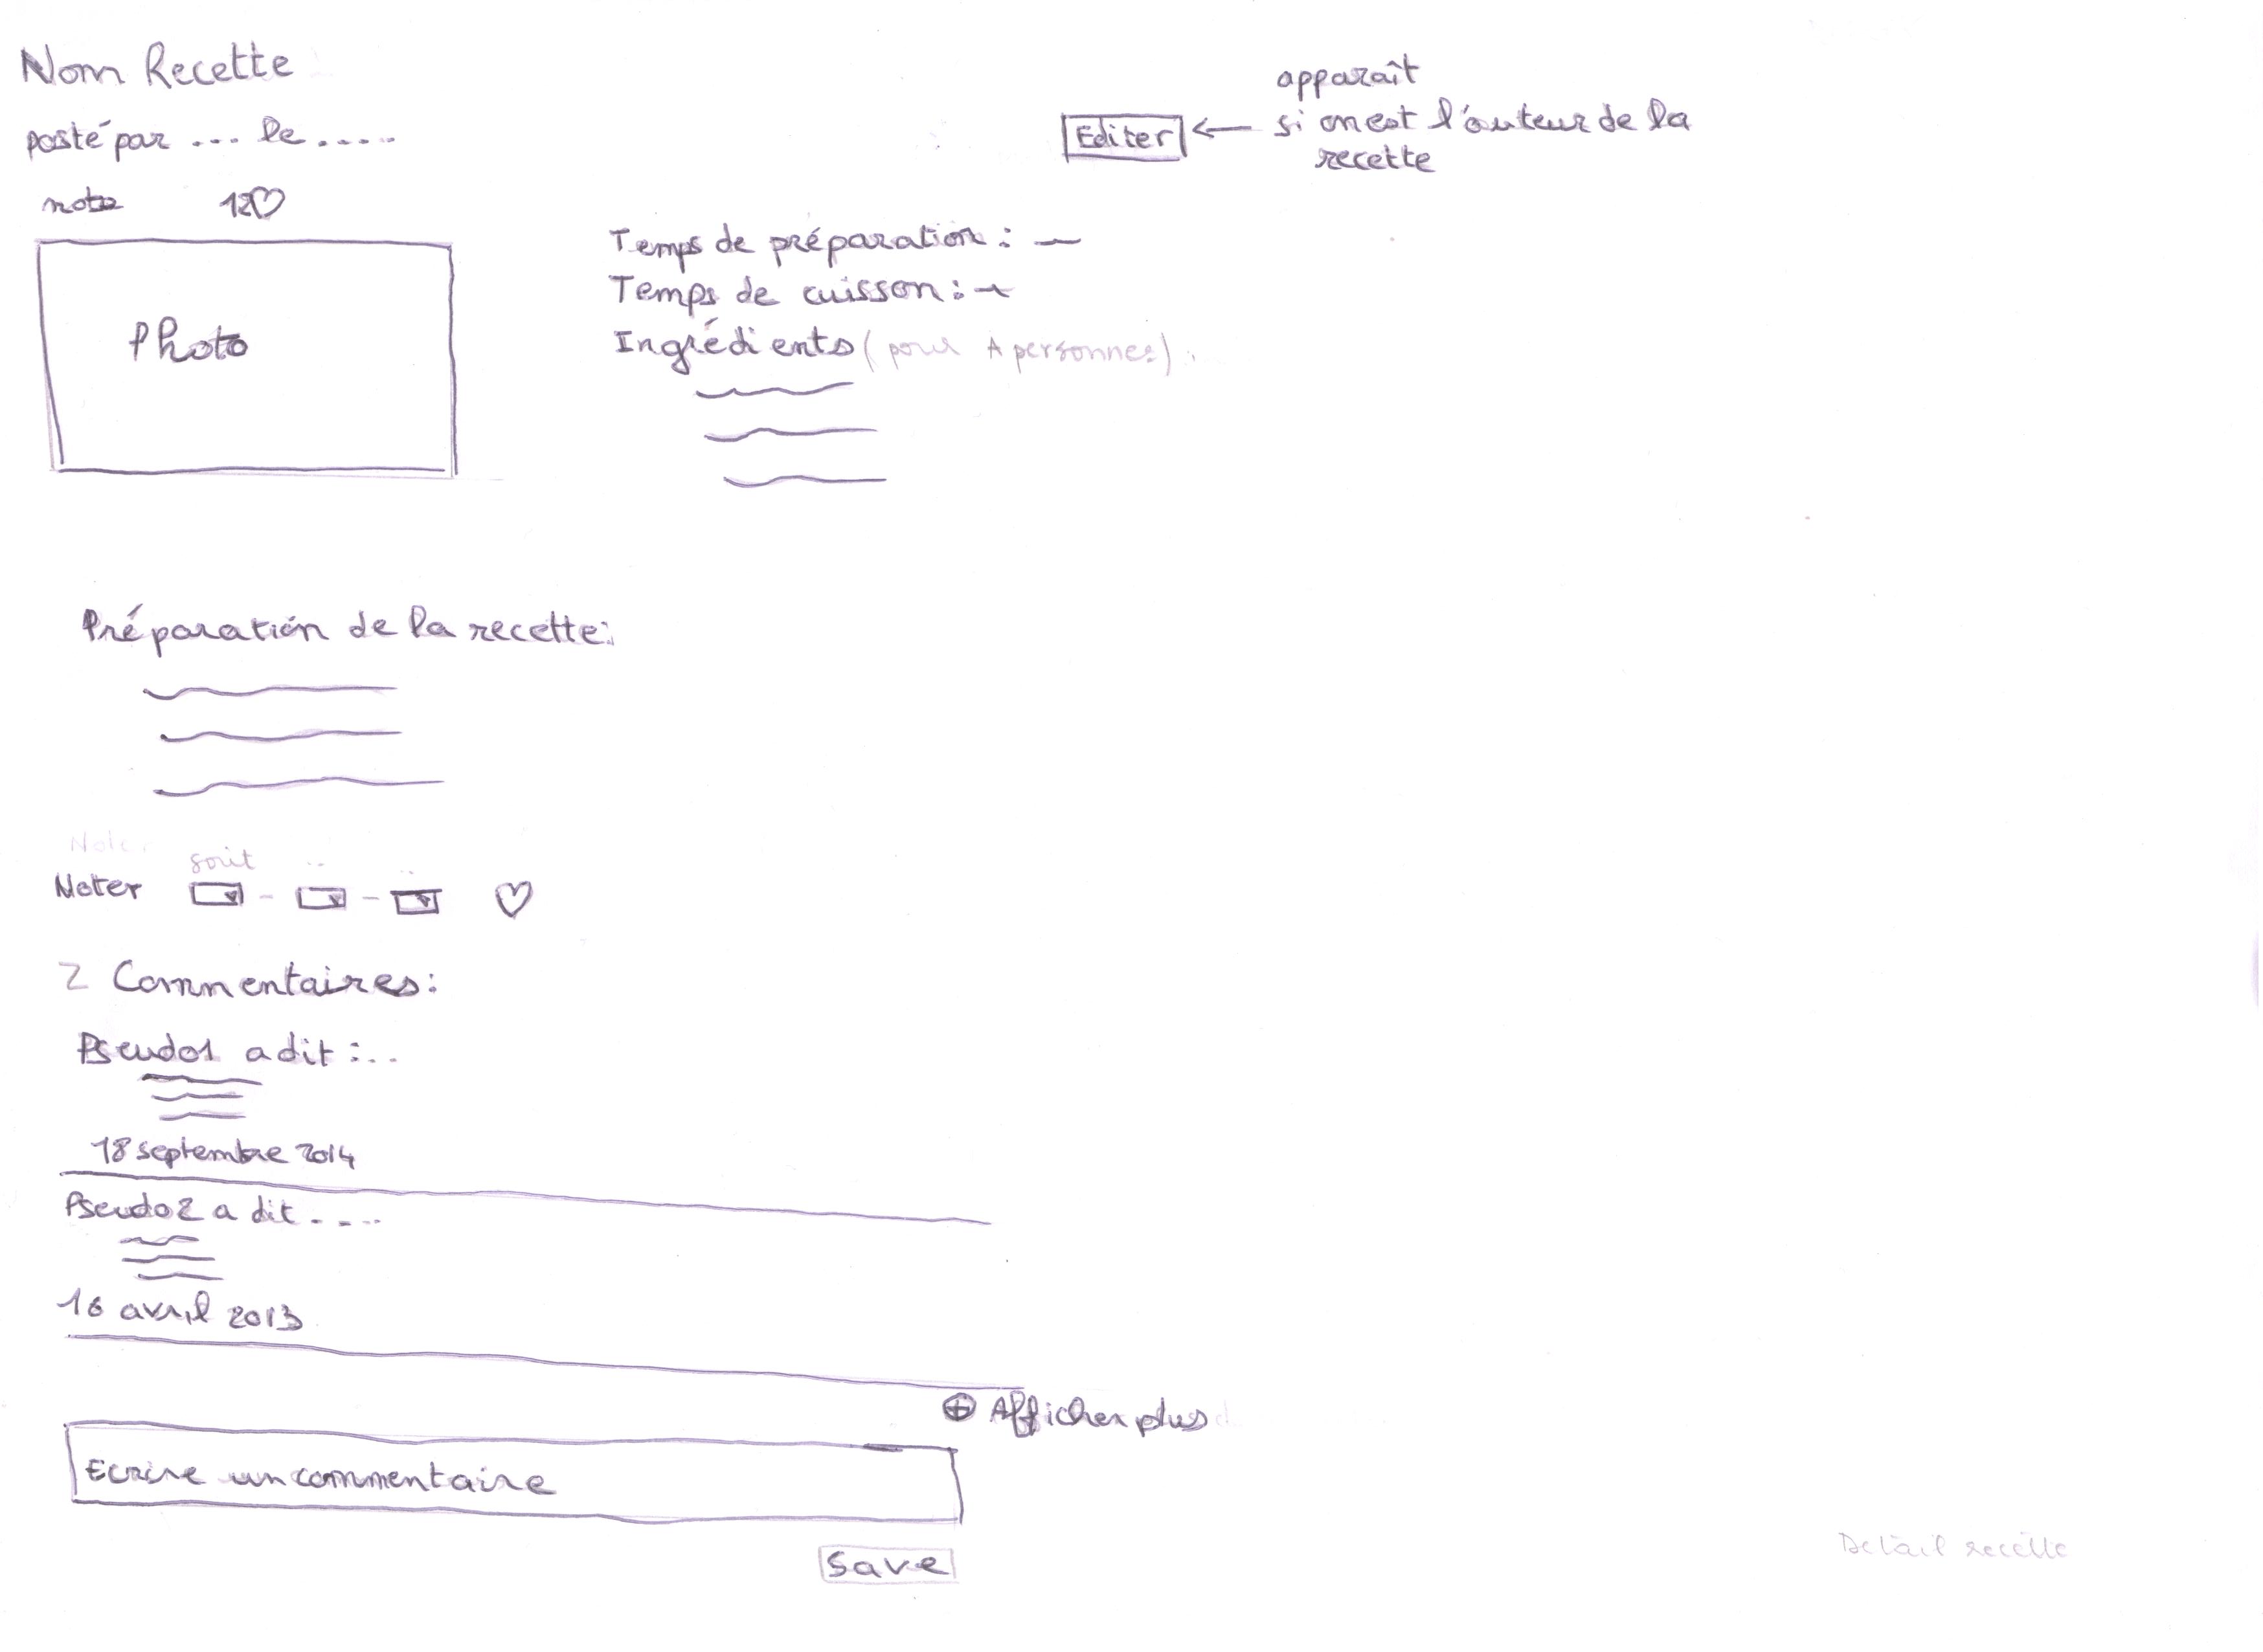 Nom Recette
posté par ... le .....
note 12♡
Photo
Editer
apparaît
si on est l'auteur de la
recette
Temps de préparation :
Temps de cuisson :
Ingrédients (pour 4 personnes) :
Préparation de la recette:
Noter
goût
Noter - - ♡
2 Commentaires:
Pseudo1 a dit :..
18 septembre 2014
Pseudo2 a dit ....
16 avril 2013
⊕ Afficher plus
Ecrire un commentaire
Save
Détail recette